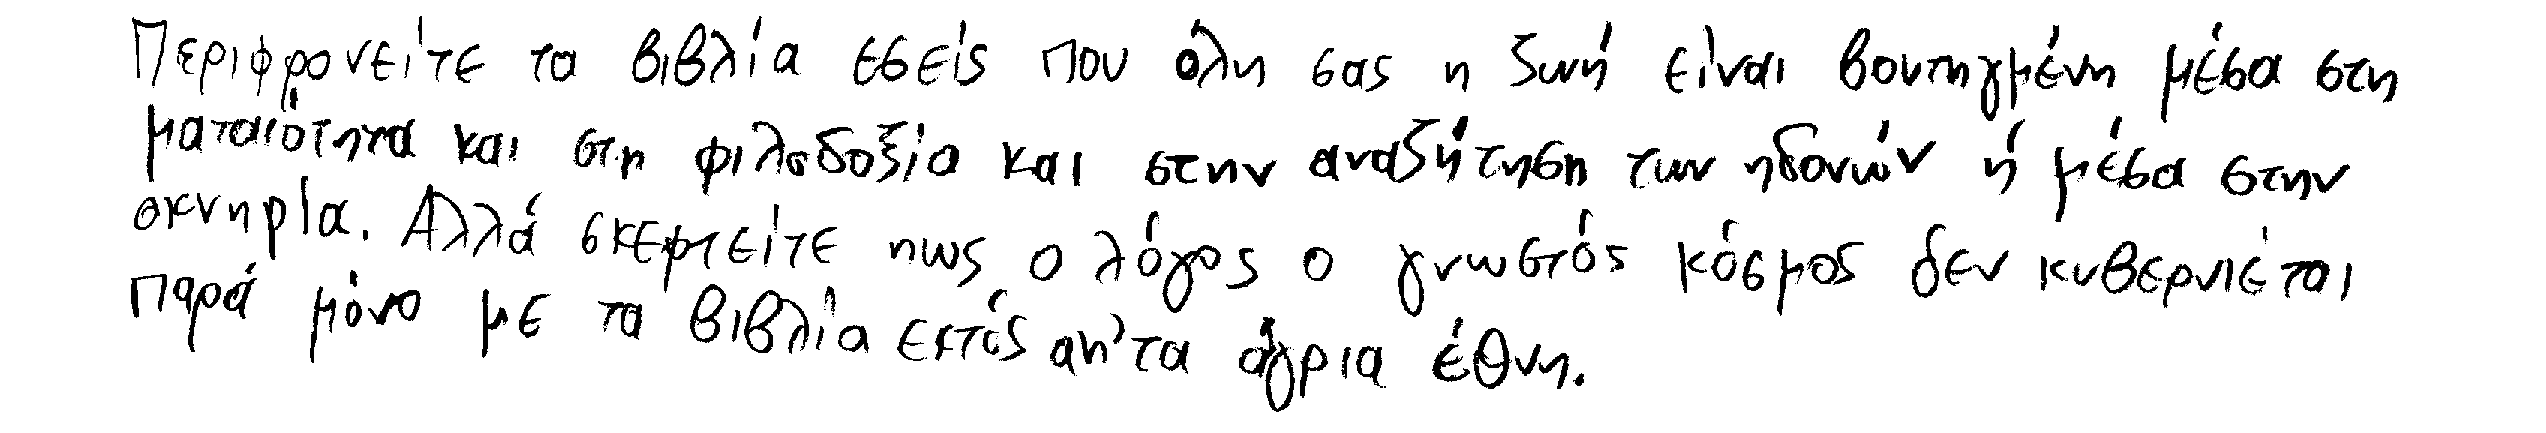 Περιφρονείτε τα βιβλία εσείς που όλη σας η ζωή είναι βουτηγμένη μέσα στη
ματαιότητα και στη φιλοδοξία και στην αναζήτηση των ηδονών ή μέσα στην
οκνηρία. Αλλά σκεφτείτε πως ο λόγος ο γνωστός κόσμος δεν κυβερνιέται
παρά μόνο με τα βιβλία εκτός απ'τα άγρια έθνη.